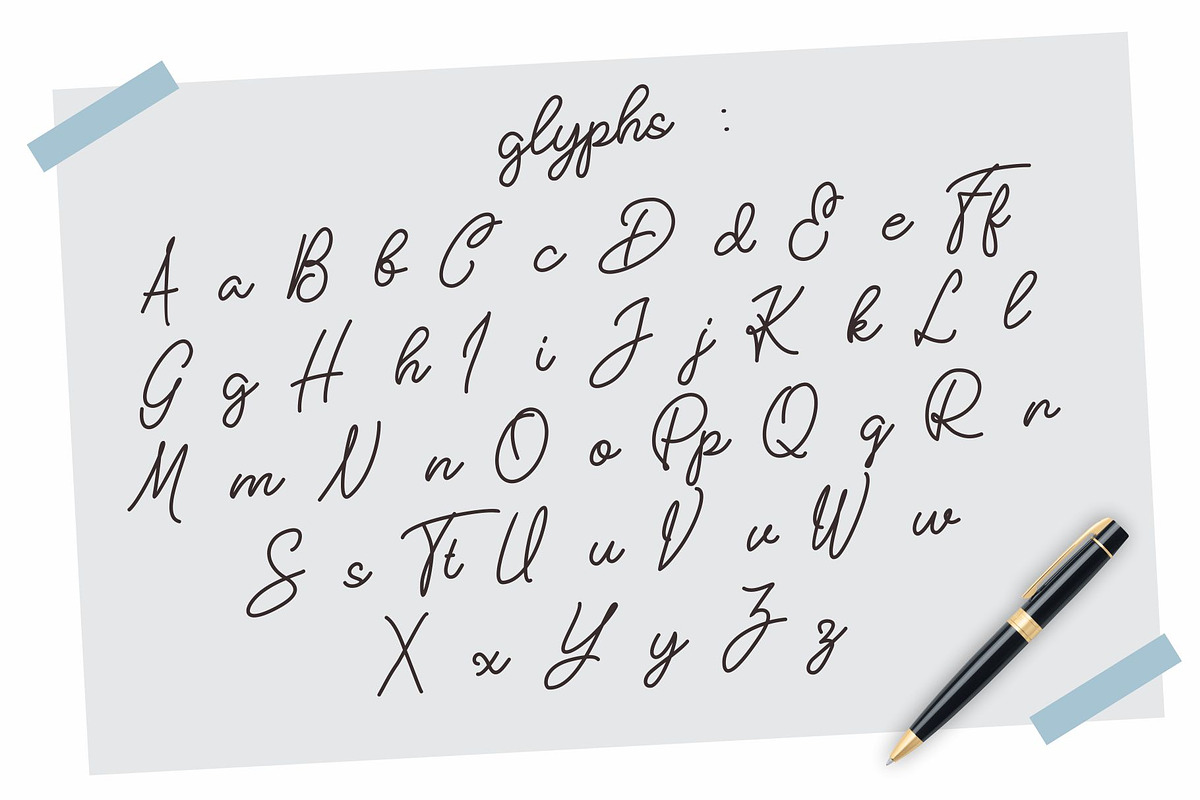 glyphs :
A a B b C c D d E e F f
G g H h I i J j K k L l
M m N n O o P p Q q R r
S s T t U u V v W w
X x Y y Z z